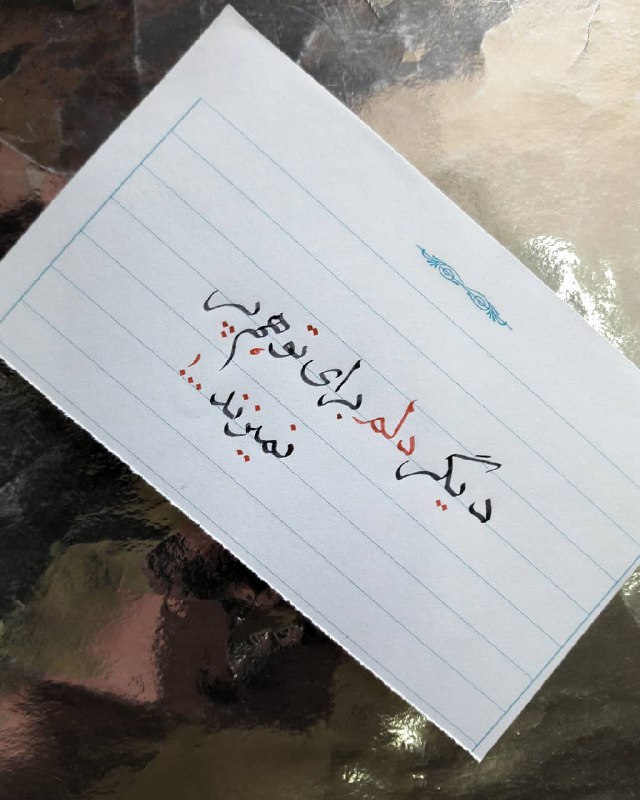 دیگر دلم برای تو هم پر
نمیزند...!